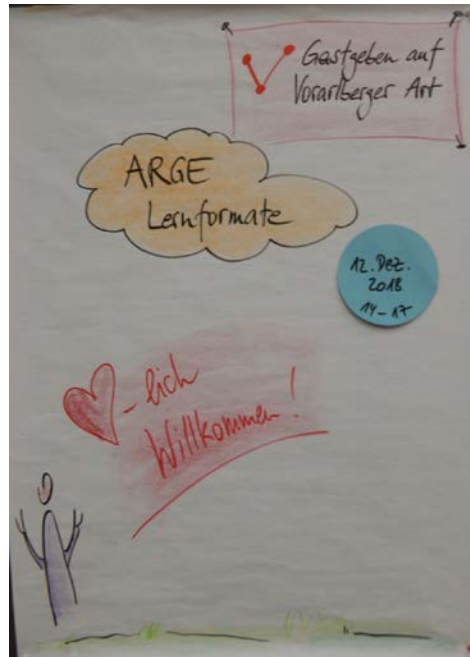 Gastgeben auf
Vorarlberger Art
ARGE
Lernformate
12. Dez.
2018
14-17
-lich
Willkommen!